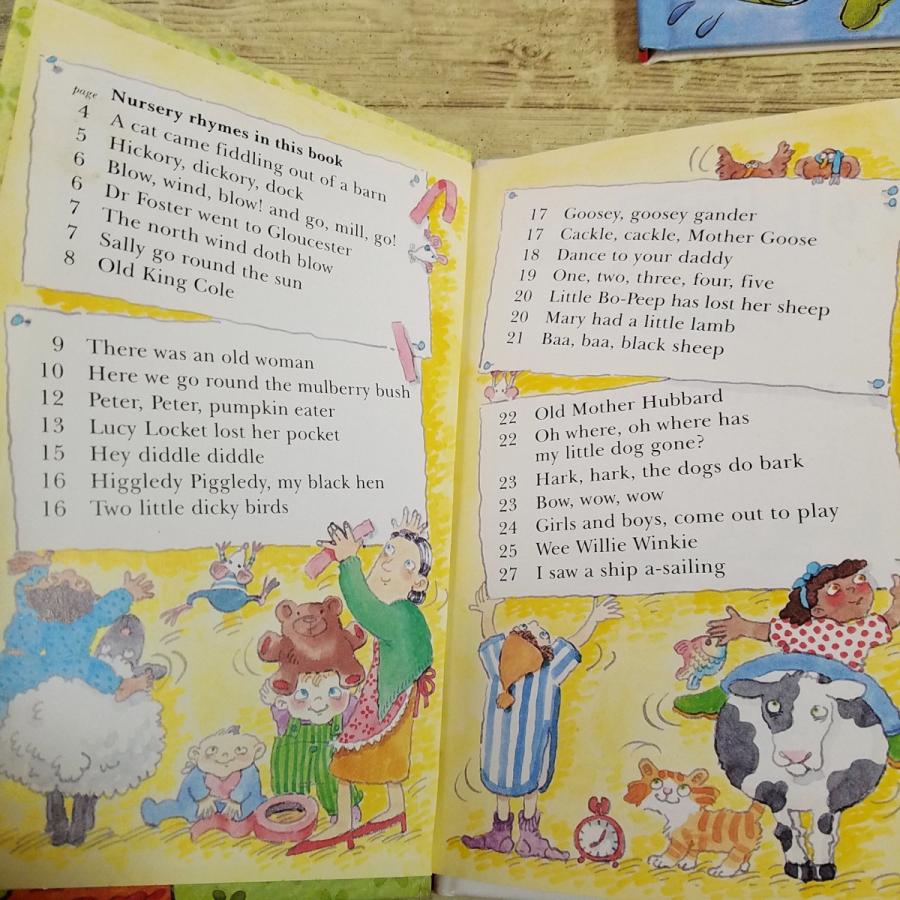 page Nursery rhymes in this book
4 A cat came fiddling out of a barn
5 Hickory, dickory, dock
6 Blow, wind, blow! and go, mill, go!
6 Dr Foster went to Gloucester
7 The north wind doth blow
7 Sally go round the sun
8 Old King Cole
9 There was an old woman
10 Here we go round the mulberry bush
12 Peter, Peter, pumpkin eater
13 Lucy Locket lost her pocket
15 Hey diddle diddle
16 Higgledy Piggledy, my black hen
16 Two little dicky birds
17 Goosey, goosey gander
17 Cackle, cackle, Mother Goose
18 Dance to your daddy
19 One, two, three, four, five
20 Little Bo-Peep has lost her sheep
20 Mary had a little lamb
21 Baa, baa, black sheep
22 Old Mother Hubbard
22 Oh where, oh where has
my little dog gone?
23 Hark, hark, the dogs do bark
23 Bow, wow, wow
24 Girls and boys, come out to play
25 Wee Willie Winkie
27 I saw a ship a-sailing